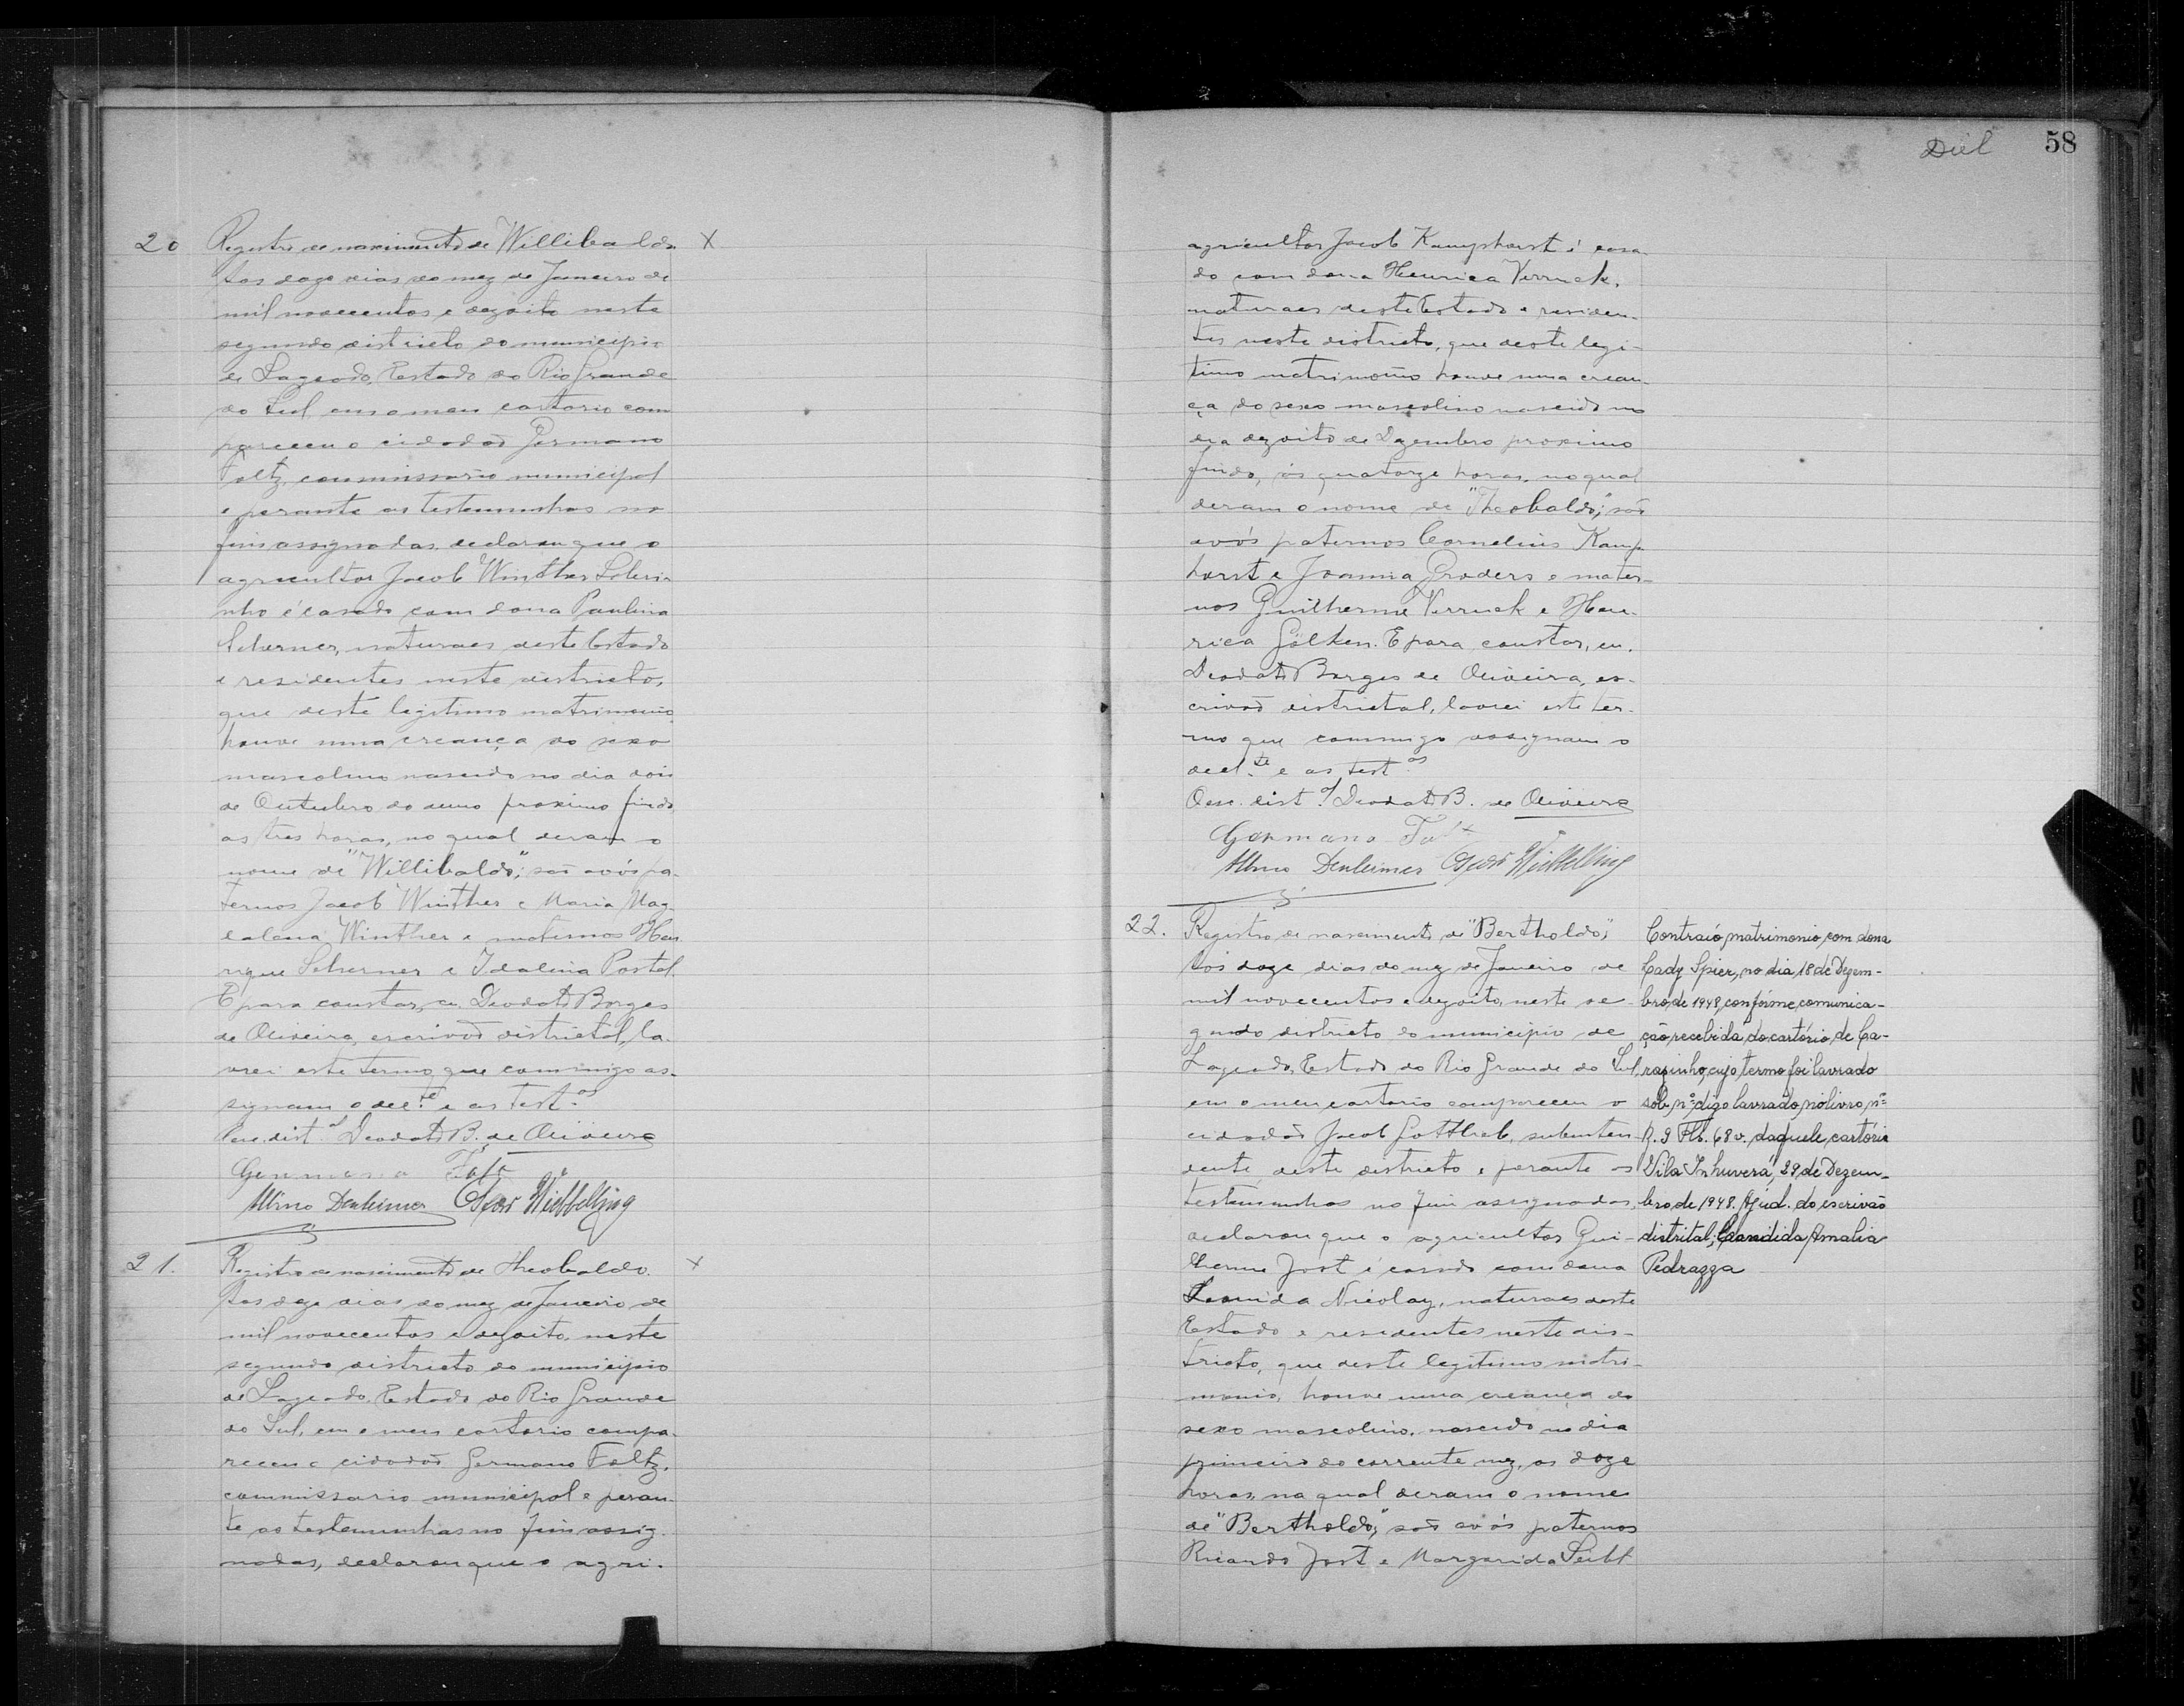 20 Registro de nascimento de Willibaldo. X
Aos doze dias do mez de Janeiro de
mil novecentos e dezoito neste
segundo districto do municipio
de Lageado, Estado do Rio Grande
do Sul em o meu cartorio com
pareceu o cidadão Germano
Foltz, commissario municipal
e perante as testemunhas no
fim assignadas, declarou que o
agricultor Jacob Winther Sobri-
nho é casado com dona Paulina
Scherner, naturaes deste Estado
e residentes neste districto,
que deste legitimo matrimonio
houve uma creança do sexo
masculino nascido no dia dois
de Outubro do anno proximo findo
as tres horas, no qual deram o
nome de "Willibaldo"; são avós pa-
ternos Jacob Winther e Maria Mag-
dalena Winther e maternos Hen
rique Scherner e Idalina Postal.
E para constar, eu Deodato Borges
de Oliveira, escrivão districtal, la-
vrei este termo que commigo as-
signam o decl.te e as test.as
O esc. dist.al Deodato B. de Oliveira
Germano Foltz
Albino Denheimer Oscar Wiebbelling
21. Registro de nascimento de Theobaldo. X
Aos doze dias do mez de Janeiro de
mil novecentos e dezoito, neste
segundo districto do municipio
de Lageado, Estado do Rio Grande
do Sul, em o meu cartorio compa-
receu o cidadão Germano Foltz,
commissario municipal e peran-
te as testemunhas no fim assig-
nadas, declarou que o agri-
Diel 58
agricultor Jacob Kamphorst é casa-
do com dona Henrica Verruck,
naturaes deste Estado e residen-
tes neste districto, que deste legi-
timo matrimonio houve uma crean-
ça do sexo masculino nascido no
dia dezoito de Dezembro proximo
findo, ás quatorze horas, no qual
deram o nome de "Theobaldo"; são
avós paternos Cornelius Kamp
horst e Joanna Graders e mater-
nos Guilherme Verruck e Hen-
rica Gölken. E para constar, eu,
Deodato Borges de Oliveira, es-
crivão districtal, lavrei este ter-
mo que commigo assignam o
decl.te e as test.as
O esc. dist.al Deodato B. de Oliveira
Germano Foltz
Albino Denheimer Oscar Wiebbelling
22. Registro de nascimento de "Bertholdo,"
Aos doze dias do mez de Janeiro de
mil novecentos e dezoito, neste se
gundo districto do municipio de
Lageado, Estado do Rio Grande do Sul,
em o meu cartorio compareceu o
cidadão Jacob Gottlieb, subinten
dente deste districto e perante as
testemunhas no fim assignadas,
declarou que o agricultor Gui-
lherme Jost é casado com dona
Leonida Nicolay, naturaes deste
Estado e residentes neste dis-
tricto, que deste legitimo matri-
monio, houve uma creança do
sexo masculino, nascido no dia
primeiro do corrente mez, as doze
horas, na qual deram o nome
de "Bertholdo;" são avós paternos
Ricardo Jost e Margarida Seibt
Contraió matrimonio, com dona
Cady Spier, no dia 18 de Dezem-
bro, de 1948, confórme, comunica-
ção, recebida, do cartório, de Ca-
razinho, cujo termo foi lavrado
sob, nº, digo lavrado, nó livro, nº
R. 9 Fls. 68 v. daquele, cartório
Vila Inhuverá, 29 de Dezem-
bro, de 1948. Ajud. do escrivão
distrital; Candida Amalia
Pedrazza